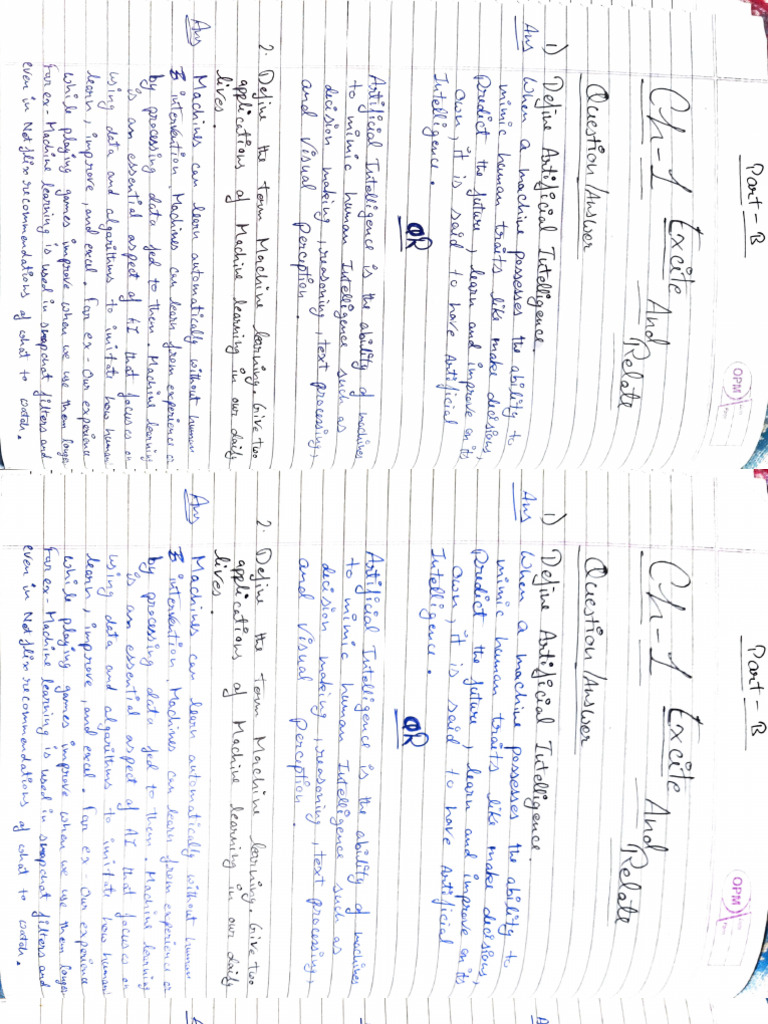 Part-B
OPM
Ch-1 Excite
And
Relate
Question/Answer
1) Define Artificial Intelligence.
Ans When a machine possesses the ability to
mimic human traits like make decisions,
Predict the future, learn and improve on its
own, it is said to have Artificial
Intelligence.
OR
Artificial Intelligence is the ability of machines
to mimic human Intelligence such as
decision making, reasoning, text processing,
and visual perception.
2. Define the term Machine learning. Give two
applications of Machine learning in our daily
lives.
Ans Machines can learn automatically without human
intervention. Machines can learn from experience or
by processing data fed to them. Machine learning
is an essential aspect of AI that focuses on
using data and algorithms to imitate how human
learn, improve, and excel. For ex- Our experience
while playing games improve when we use them longer
For ex- Machine learning is used in snapchat filters and
even in Netflix recommendations of what to watch.
Part-B
OPM
Ch-1 Excite
And
Relate
Question/Answer
1) Define Artificial Intelligence.
Ans When a machine possesses the ability to
mimic human traits like make decisions,
Predict the future, learn and improve on its
own, it is said to have Artificial
Intelligence.
OR
Artificial Intelligence is the ability of machines
to mimic human Intelligence such as
decision making, reasoning, text processing,
and visual perception.
2. Define the term Machine learning. Give two
applications of Machine learning in our daily
lives.
Ans Machines can learn automatically without human
intervention. Machines can learn from experience or
by processing data fed to them. Machine learning
is an essential aspect of AI that focuses on
using data and algorithms to imitate how human
learn, improve, and excel. For ex- Our experience
while playing games improve when we use them longer
For ex- Machine learning is used in snapchat filters and
even in Netflix recommendations of what to watch.